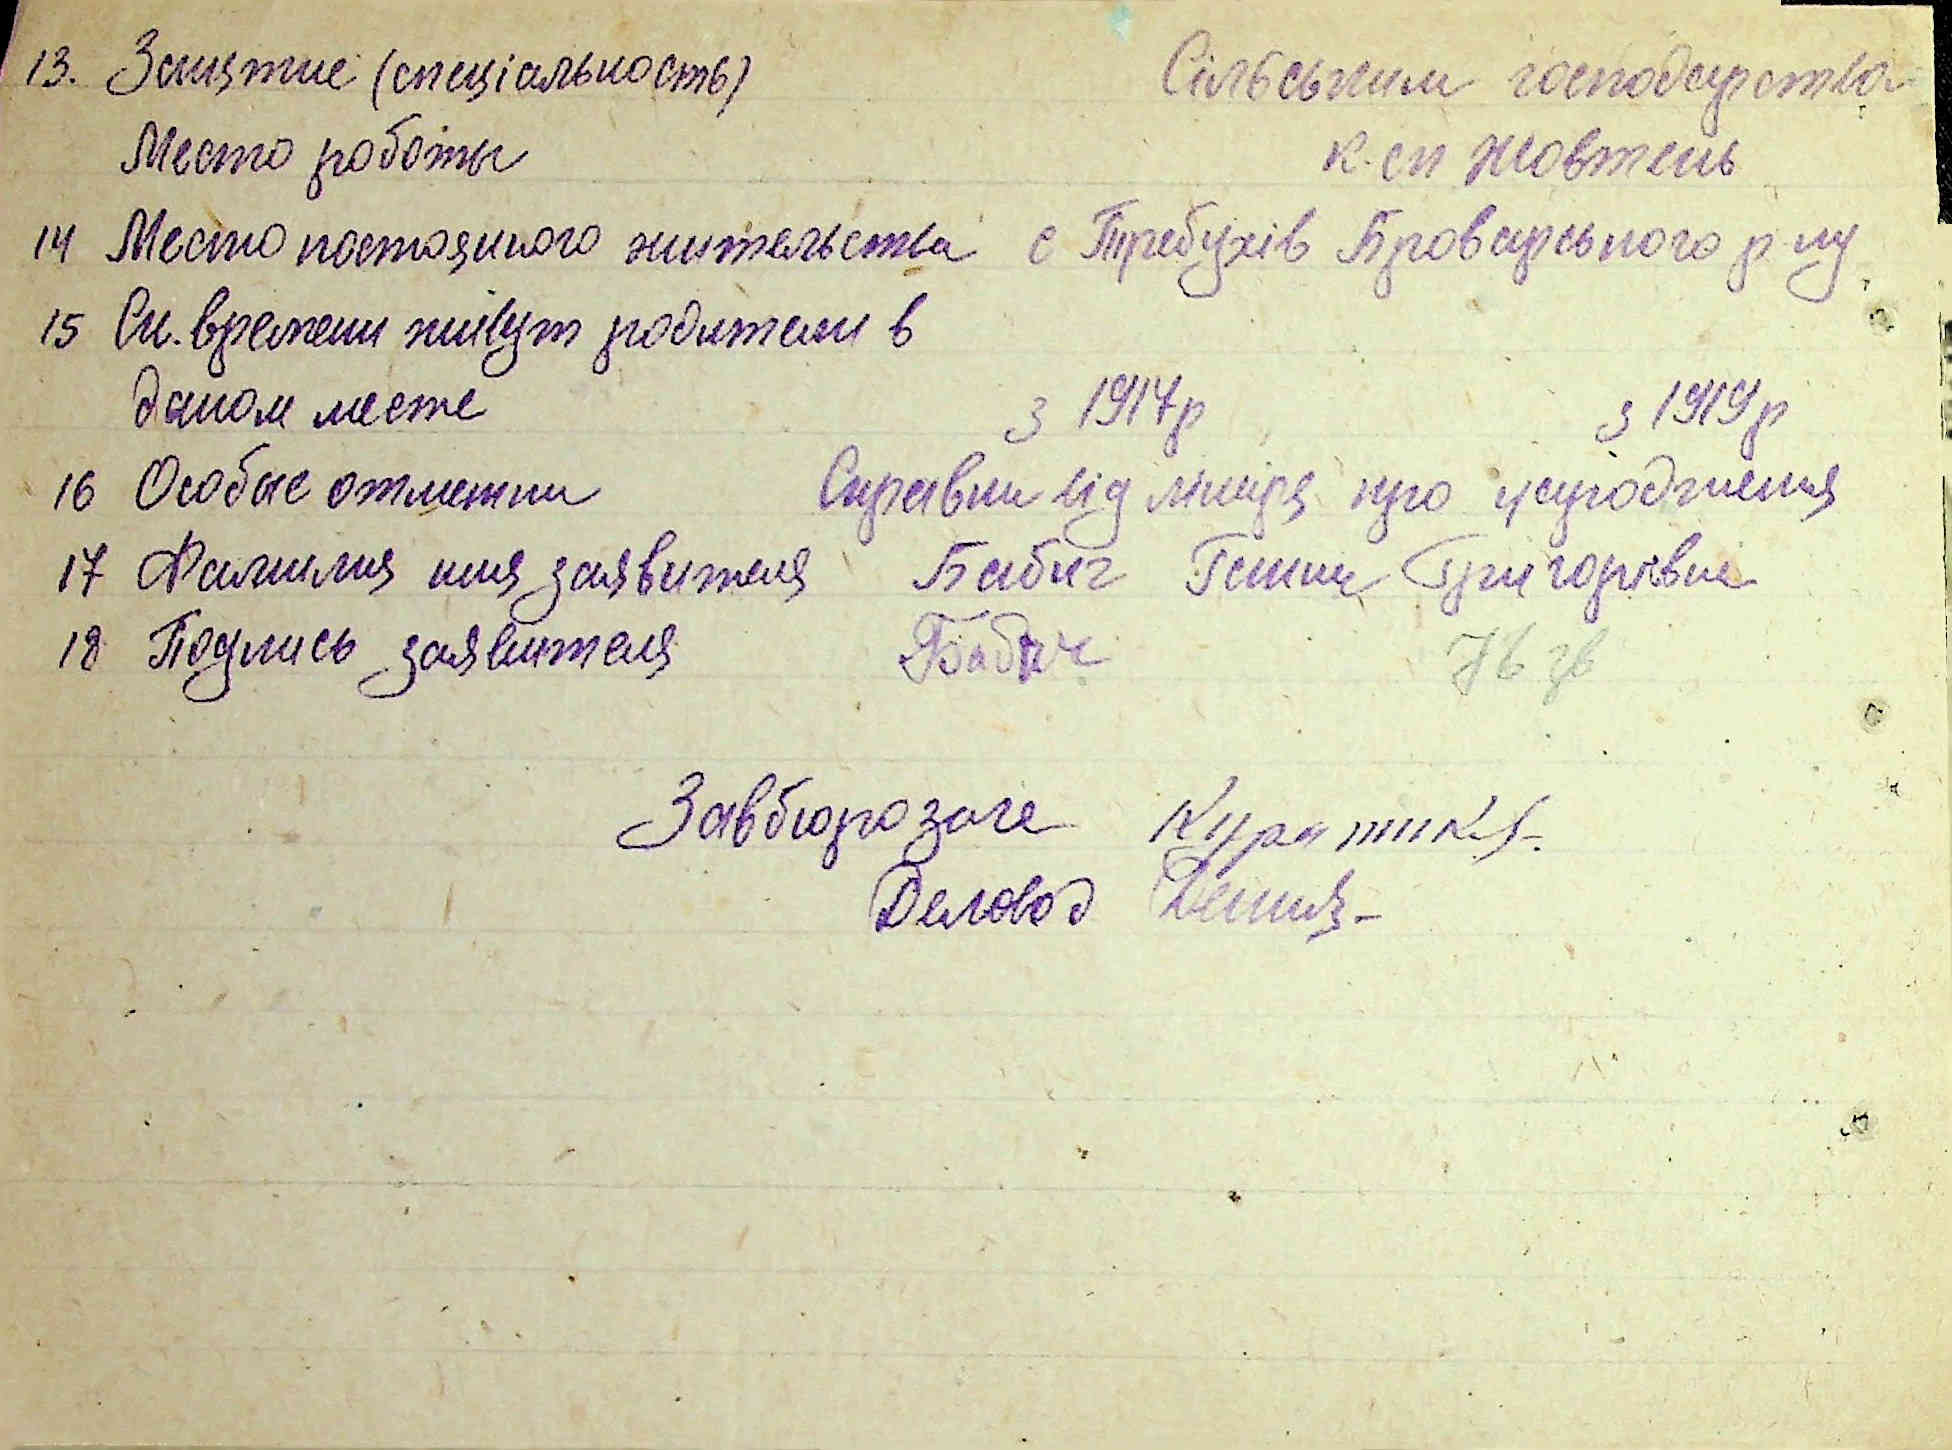 13. Занятие (спеціальность) Сільським господарства
Место работы к-сп Жовтень
14 Место постоянного жительства с Требухів Броварського р-ну
15 Ск. времени живут родители в
даном месте з 1917р з 1919р
16 Особые отметки Справки від лікаря про
17 Фамилия имя заявителя Бабич Ганни Григорівни
18 Подпись заявителя Бабич
Завбюрозаге
Деловод